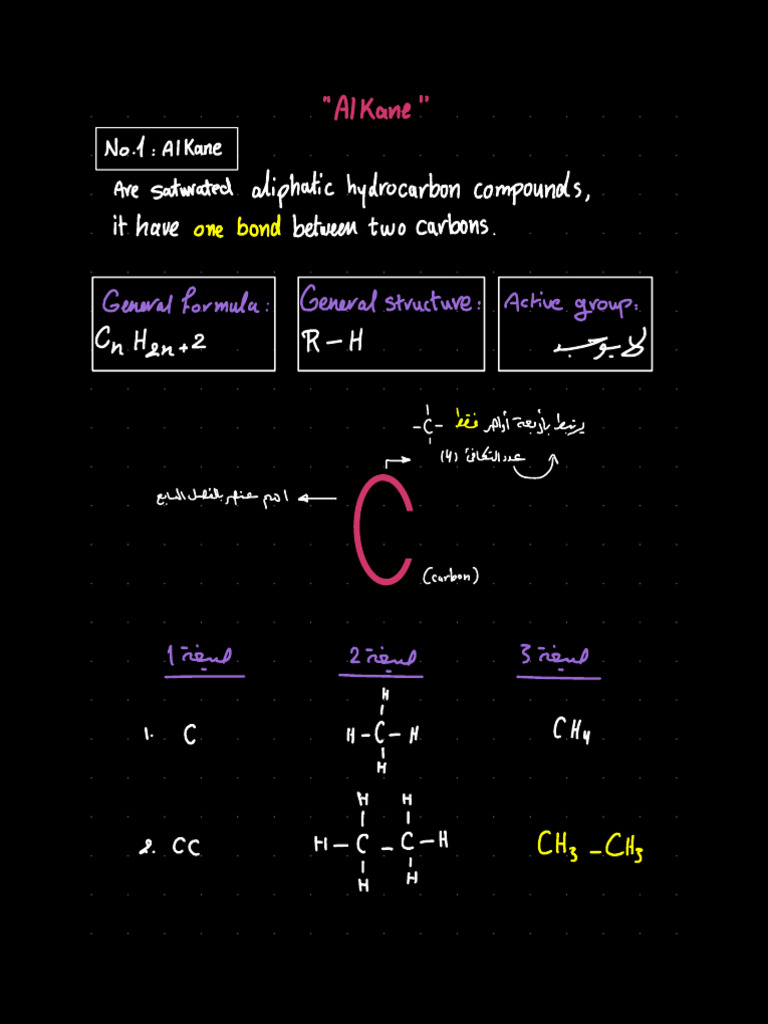 "Alkane"
No.1: Alkane
Are saturated aliphatic hydrocarbon compounds,
it have one bond between two carbons.
General formula:
CnH2n+2
General structure:
R-H
Active group:
لا يوجد
يرتبط بأربعة أواصر فقط -C-
عدد التكافؤ (4)
اهم عنصر بالفصل السابع
C
(carbon)
صيغة 1
صيغة 2
صيغة 3
1. C
H
H-C-H
H
CH4
2. CC
H H
H-C-C-H
H H
CH3-CH3